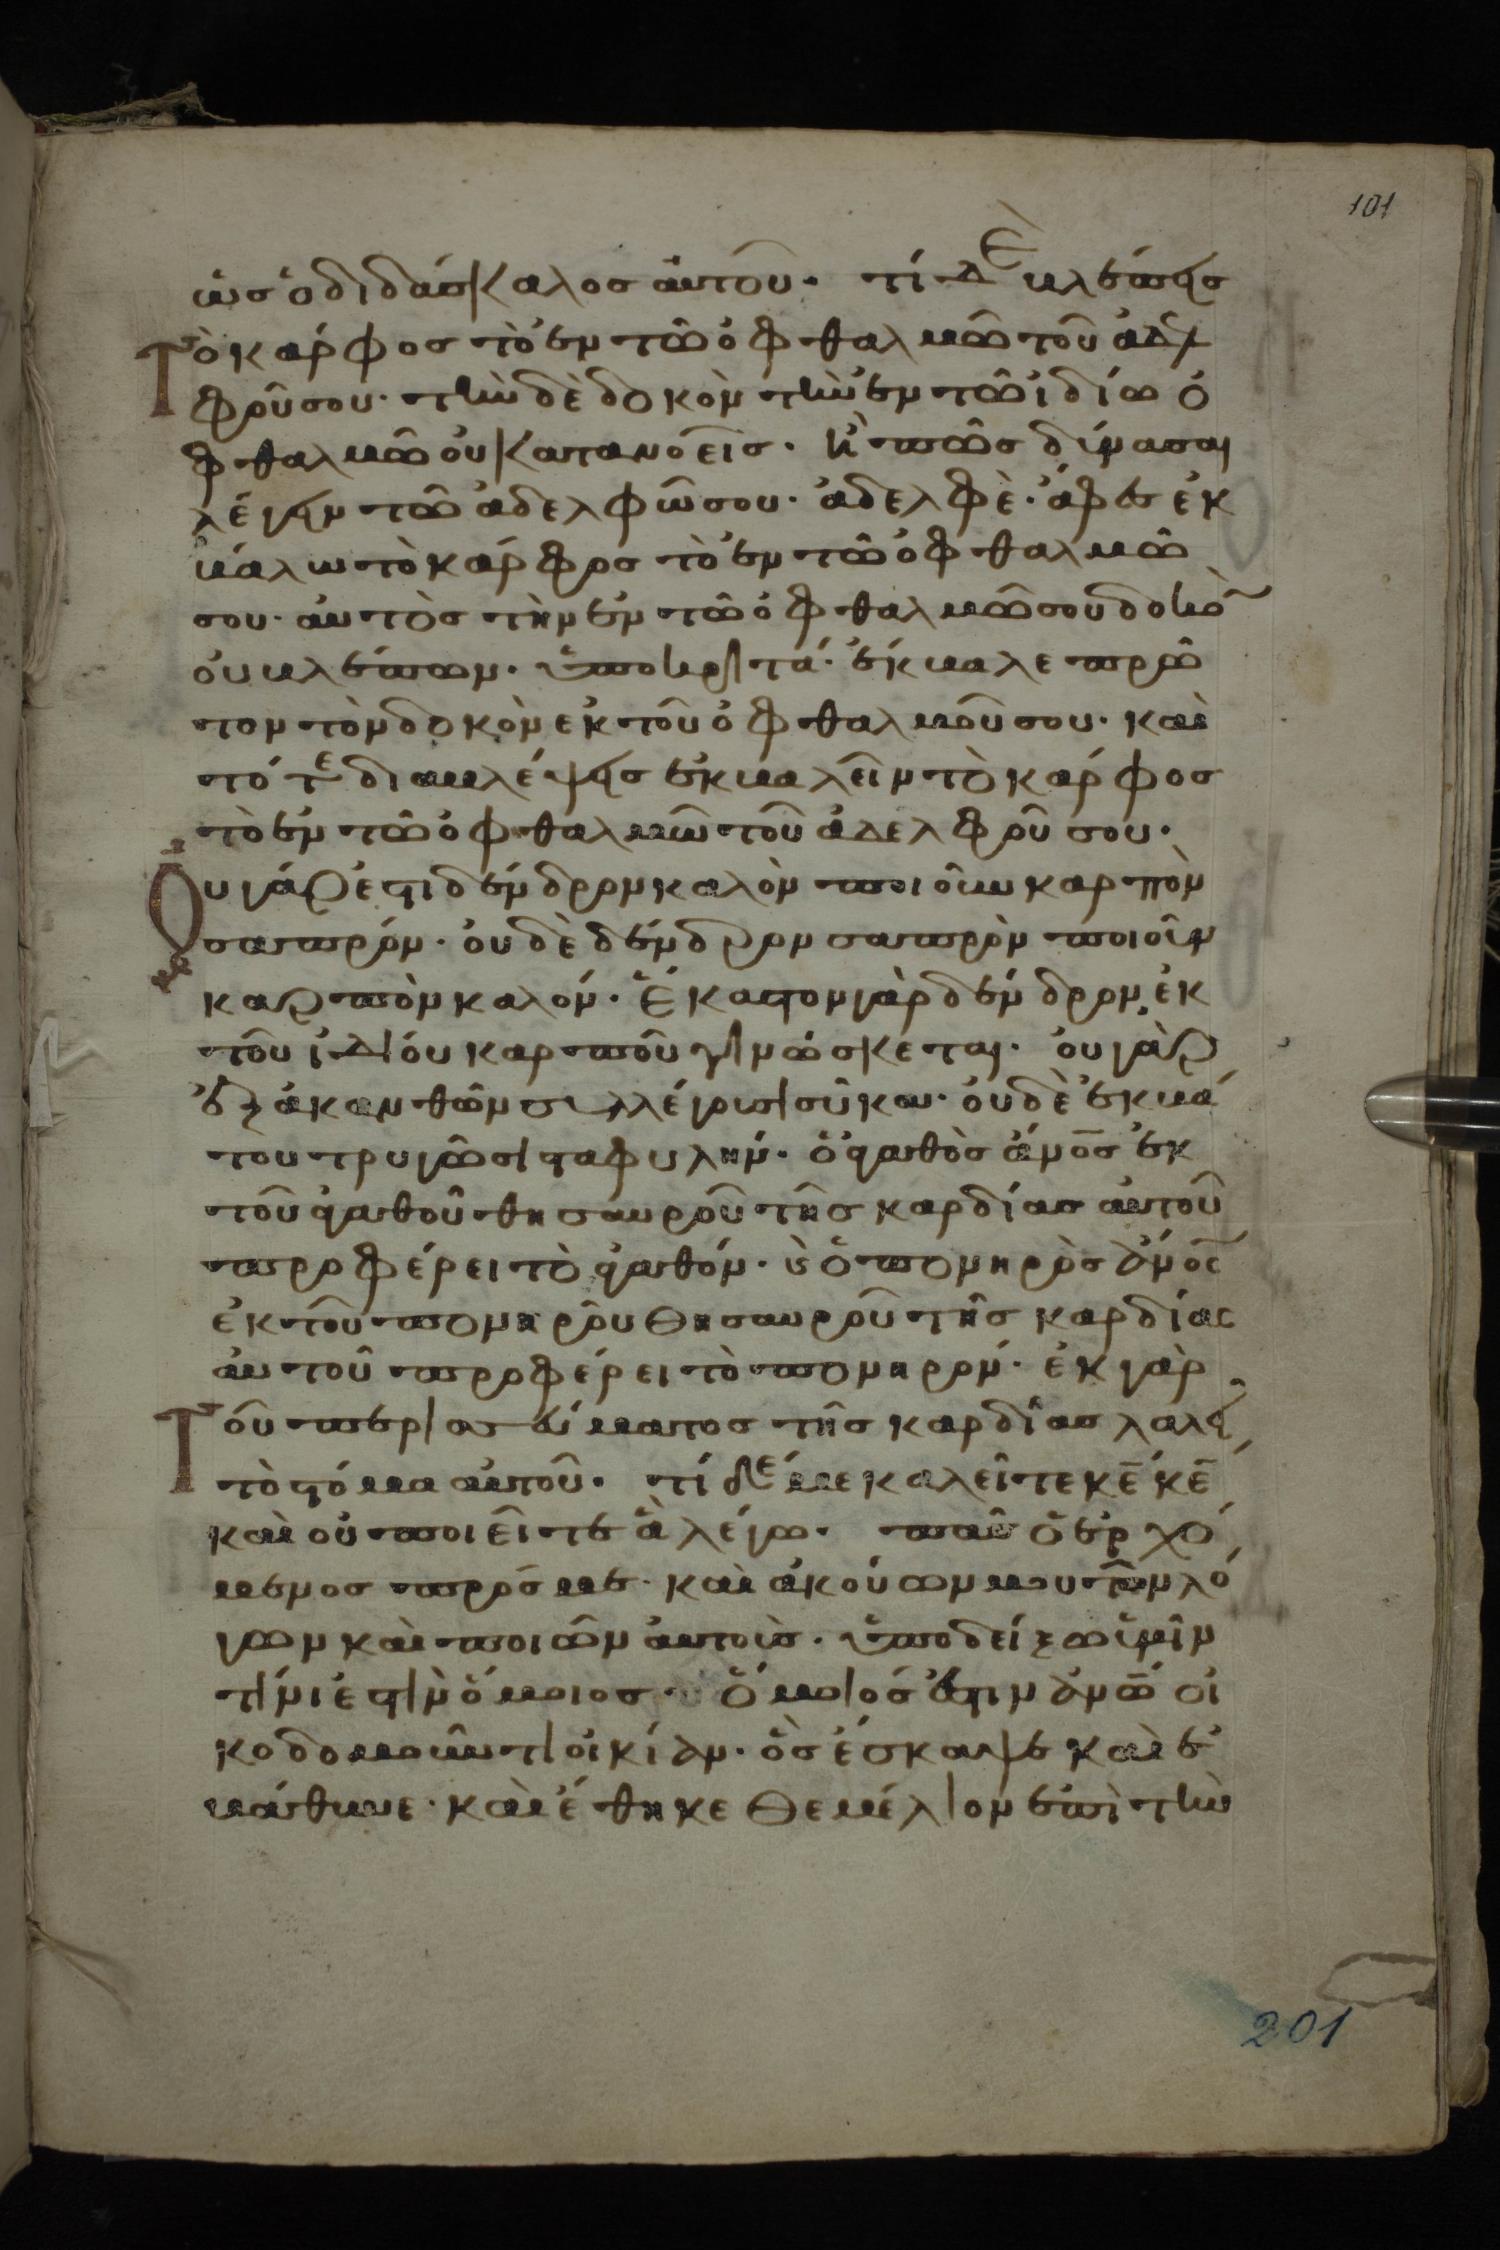 101
ὡς ὁ διδάσκαλος αὐτοῦ· τί δὲ βλέπεις
τὸ κάρφος τὸ ἐν τῶ ὀφθαλμῶ τοῦ ἀδελ
φοῦ σου· τὴν δὲ δοκὸν τὴν ἐν τῶ ἰδίω ὀ
φθαλμῶ οὐ κατανοεῖς· ἢ πῶς δύνασαι
λέγειν τῶ ἀδελφῶ σου· ἀδελφὲ· ἄφες ἐκ
βάλω τὸ κάρφος τὸ ἐν τῶ ὀφθαλμῶ
σου· αὐτὸς τὴν ἐν τῶ ὀφθαλμῶ σου δοκὸ
οὐ βλέπων· ὑποκριτά· ἔκβαλε πρῶ
τον τὸν δοκὸν ἐκ τοῦ ὀφθαλμοῦ σου· καὶ
τότε διαβλέψεις ἐκβαλεῖν τὸ κάρφος
τὸ ἐν τῶ ὀφθαλμῶ τοῦ ἀδελφοῦ σου·
Οὐ γάρ ἐστι δένδρον καλὸν ποιοῦν καρπὸν
σαπρόν· οὐδὲ δένδρον σαπρὸν ποιοῦν
καρπὸν καλόν· ἕκαστον γὰρ δένδρον ἐκ
τοῦ ἰδίου καρποῦ γινώσκεται· οὐ γὰρ
ἐξ ἀκανθῶν συλλέγουσι σῦκα· οὐδὲ ἐκ βά
του τρυγῶσι σταφυλήν· ὁ ἀγαθὸς ἄνος ἐκ
τοῦ ἀγαθοῦ θησαυροῦ τῆς καρδίας αὐτοῦ
προφέρει τὸ ἀγαθόν· καὶ ὁ πονηρὸς ἄνος
ἐκ τοῦ πονηροῦ θησαυροῦ τῆς καρδίας
αὐτοῦ προφέρει τὸ πονηρόν· ἐκ γὰρ
τοῦ περισσεύματος τῆς καρδίας λαλεῖ
τὸ στόμα αὐτοῦ· τί δέ με καλεῖτε κε κε
καὶ οὐ ποιεῖτε ἃ λέγω· πᾶς ὁ ἐρχό
μενος πρός με· καὶ ἀκούων μου τῶν λό
γων καὶ ποιῶν αὐτοὺς· ὑποδείξω ὑμῖν
τίνι ἐστὶν ὅμοιος· ὅμοιός ἐστιν ἀνω οἰ
κοδομοῦντι οἰκίαν· ὃς ἔσκαψε καὶ ἐ
βάθυνε· καὶ ἔθηκε θεμέλιον ἐπὶ τὴν
201